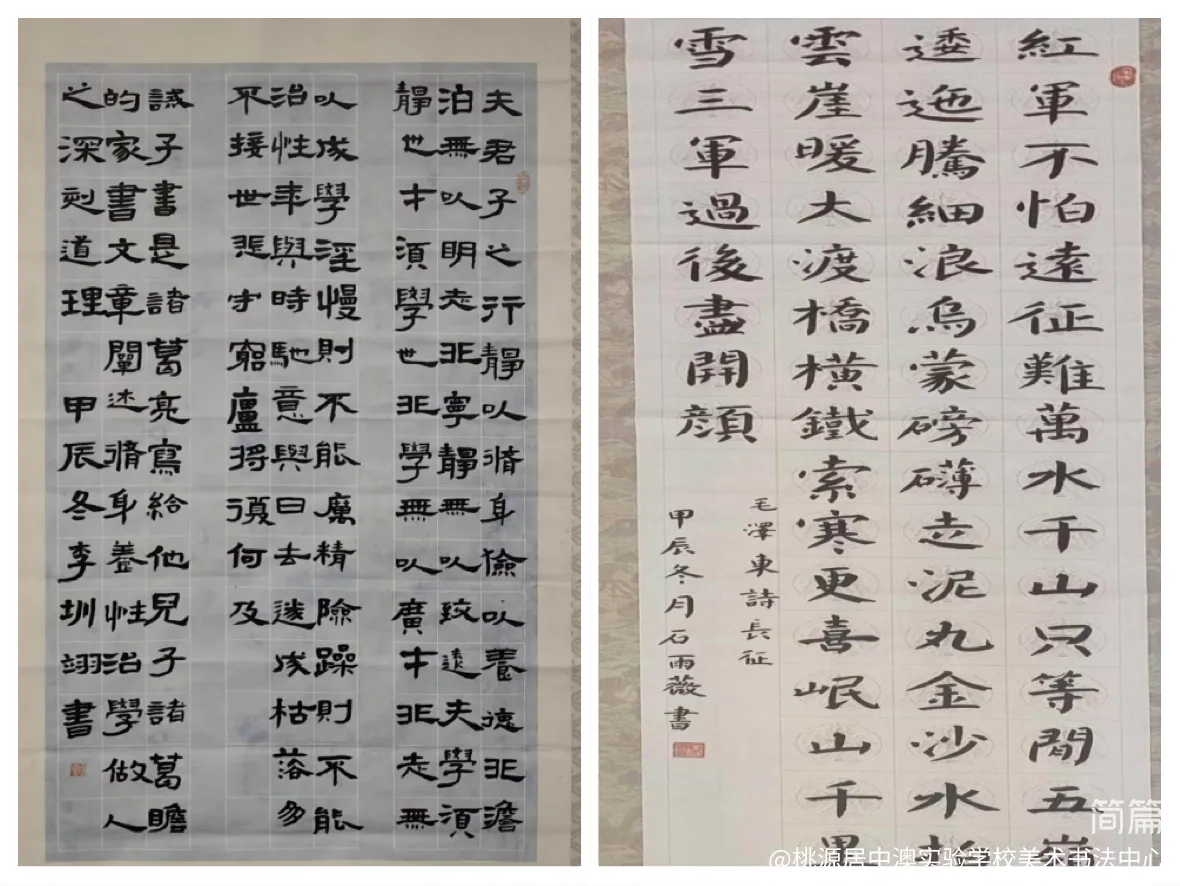 夫君子之行靜以脩身儉以養德非澹
泊無以明志非寧靜無以致遠夫學須
靜也才須學也非學無以廣才非志無
以成學淫慢則不能厲精險躁則不能
治性年與時馳意與日去遂成枯落多
不接世悲守窮廬將復何及
誡子書是諸葛亮寫給他兒子諸葛瞻
的家書文章闡述脩身養性治學做人
之深刻道理 甲辰冬李圳翊書
紅軍不怕遠征難萬水千山只等閒五嶺
逶迤騰細浪烏蒙磅礴走泥丸金沙水拍
雲崖暖大渡橋橫鐵索寒更喜岷山千里
雪三軍過後盡開顏
毛澤東詩長征
甲辰冬月石雨薇書
简篇
@桃源居中澳实验学校美术书法中心